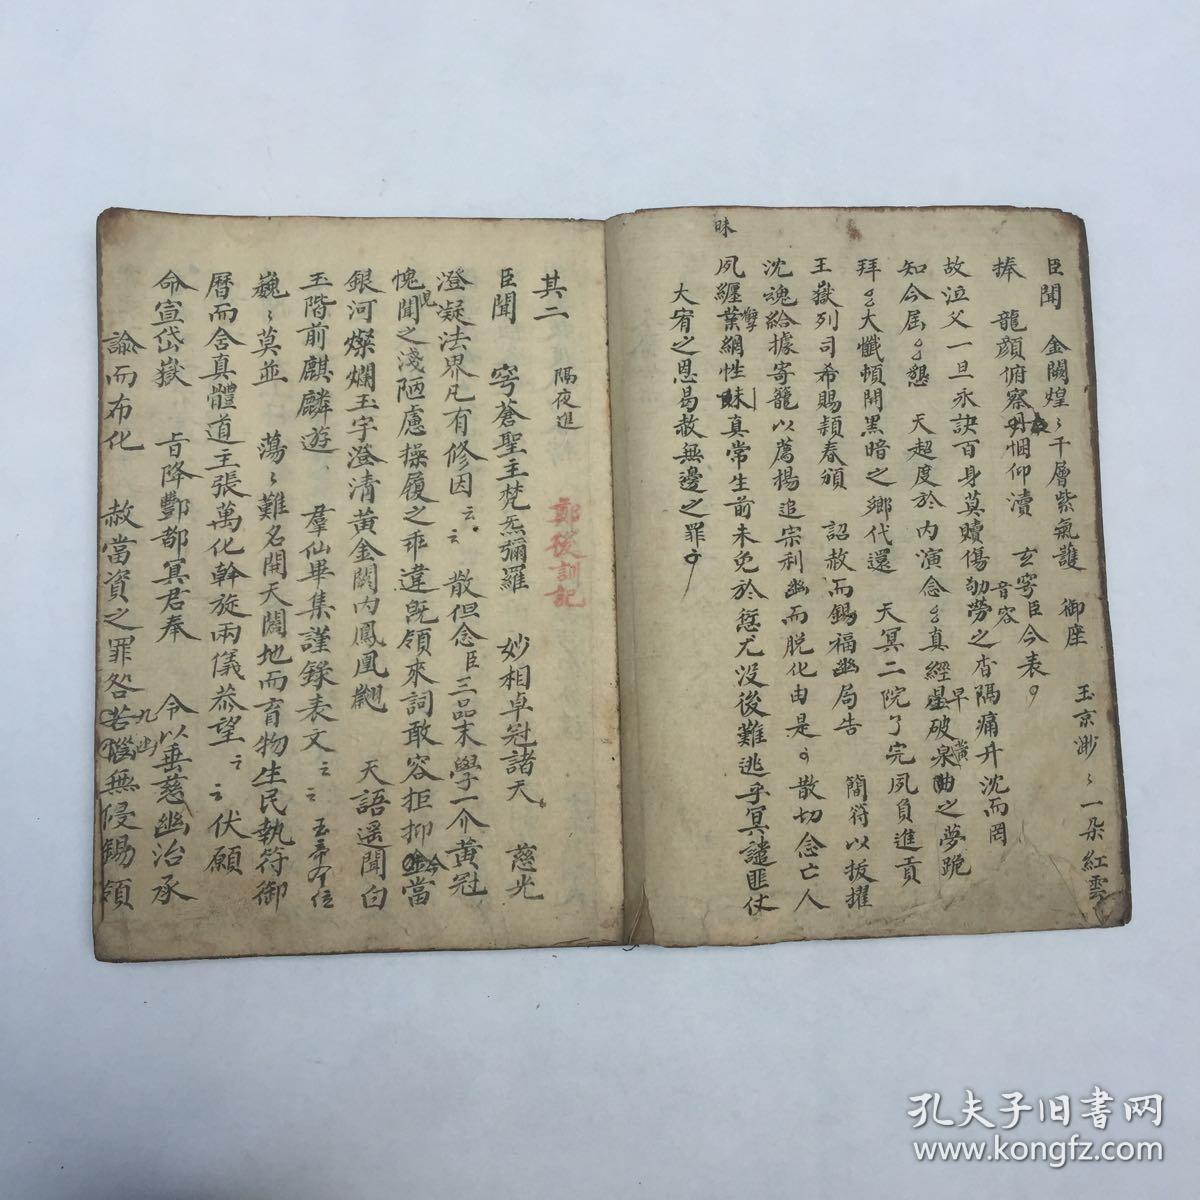 臣聞 金闕煌〻千層紫氣護 御座 玉京渺〻一朵紅雲
捧 龍顔俯察悃仰瀆 玄穹臣今表
故泣父一旦永訣百身莫贖傷劬勞之音容杳隔痛升沈而罔
知今屆懇 天超度於內演念真經早破泉曲之夢跪
拜大懺頓開黑暗之鄉代還 天冥二院了完夙負進貢
王嶽列司希賜頴春頒 詔赦而錫福幽局告 簡符以拔擢
沈魂給據寄籠以薦揚追宗利幽而脫化由是 散切念亡人
夙纏孽網性昧真常生前未免於愆尤沒後難逃乎冥譴匪仗
大宥之恩曷赦無邊之罪
昧
其二 隔夜進
鄭後訓記
臣聞 穹蒼聖主梵炁彌羅 妙相卓冠諸天 慈光
澄凝法界凡有修因〻〻 散但念臣三品末學一介黃冠
愧見聞之淺陋慮操履之乖違既領來詞敢容拒抑今當
銀河燦爛玉宇澄清黃金闕內鳳凰翽 天語遥聞白
玉階前麒麟遊 羣仙畢集謹錄表文〻〻玉帝本位
巍〻莫並 蕩〻難名開天闢地而育物生民執符御
曆而含真體道主張萬化幹旋兩儀恭望〻〻伏願
命宣岱嶽 旨降酆都冥君奉 令以垂慈幽冶承
諭而布化 赦當資之罪咎九幽苦惱無侵錫領